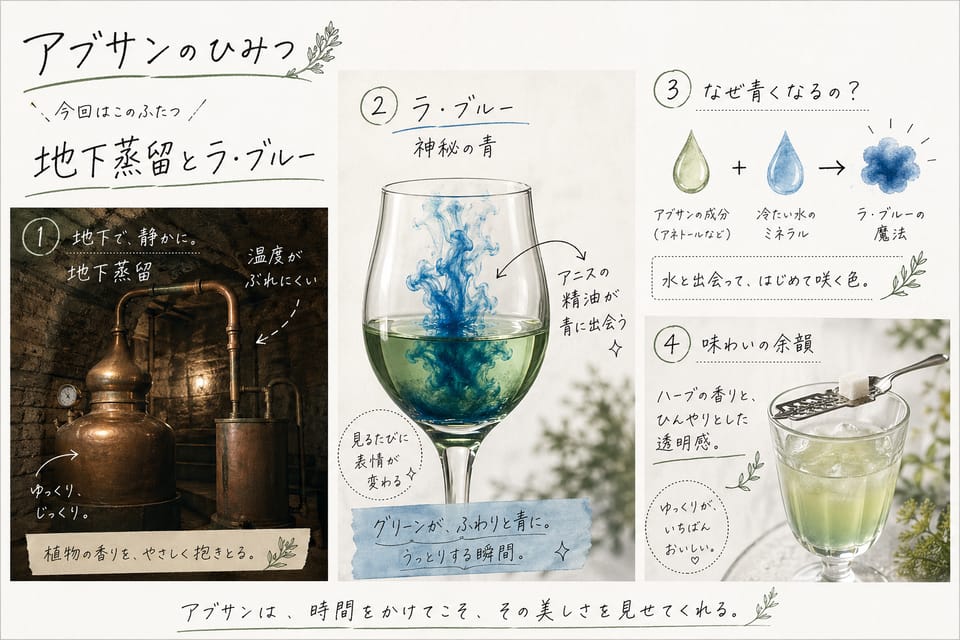 アブサンのひみつ
今回はこのふたつ
地下蒸留とラ・ブルー
1 地下で、静かに。
地下蒸留
温度が
ぶれにくい
ゆっくり、
じっくり。
植物の香りを、やさしく抱きとる。
2 ラ・ブルー
神秘の青
アニスの
精油が
青に出会う
見るたびに
表情が
変わる
グリーンが、ふわりと青に。
うっとりする瞬間。
3 なぜ青くなるの?
+ →
アブサンの成分
(アネトールなど)
冷たい水の
ミネラル
ラ・ブルーの
魔法
水と出会って、はじめて咲く色。
4 味わいの余韻
ハーブの香りと、
ひんやりとした
透明感。
ゆっくりが、
いちばん
おいしい。
♡
アブサンは、時間をかけてこそ、その美しさを見せてくれる。